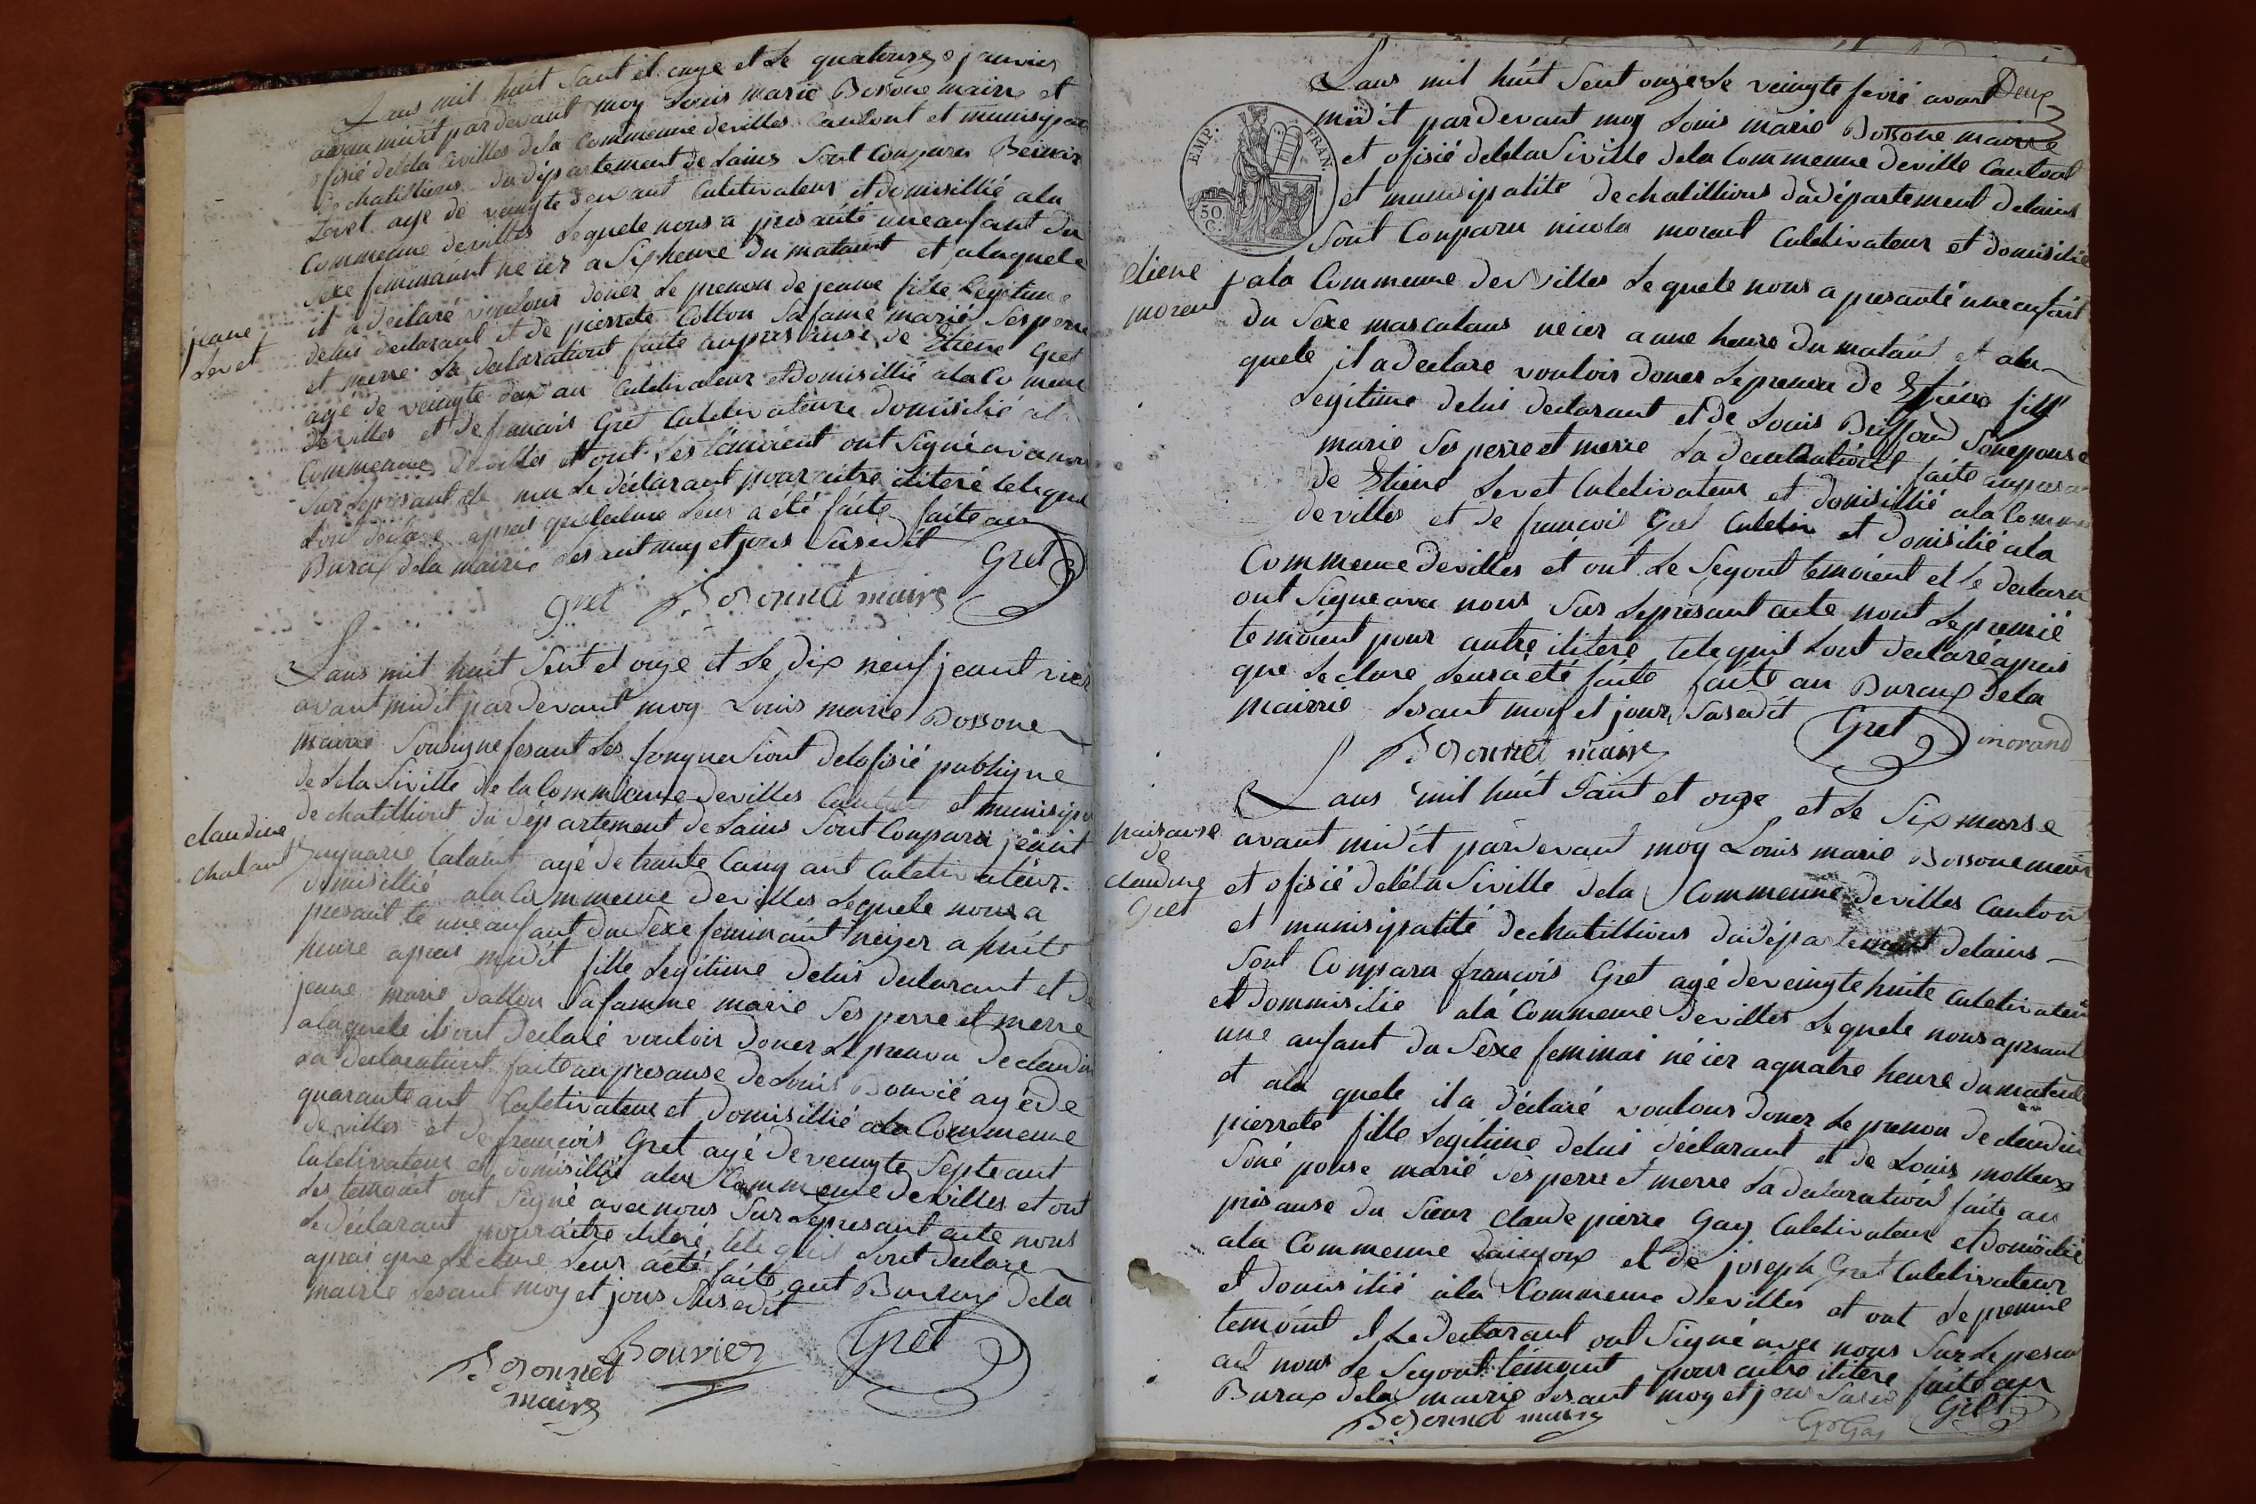 Lans mil huit sant et onze et le quatorze janvier
avan midit par devant moy Louis marie Bosone maire et
ofisié deleta civilles dela Commeune devilles Canlont et munisipa
de chatillions du département de Lains sont Conparu Benoit
Levet age de veingte deu ant Culetivateur et domisillié ala
Commeune devilles Lequele nous a presanté une anfant du
sexe feminaint ne ier a six heure du mataint et alaquele
il a declaré voulour doner le prenon de jeane fille Legitime
delui declarant et de pierrete Collon sa fame marié ses perre
et merre la declarationt faite aupres ause de Etiene Gret
agé de veingte deux an Culetivateur et domisillié ala Comeune
devilles et de francois Gret Culetivateure domisilié al
Commeune devilles et ont les temoient ont signé avec nous
sur le presant acte nu le declarant pour aitre ilitere tele quil
lon declare apres que lecture leur a été faite faite au
Burax dela mairie les ant moy et jour susedit
Gret
gret Bosonnet maire
jeane
Levet
Lans mil huit sent et onze et le dix neuf jeanvier
avant midit par devant moy Louis marie Bossone
maire sousigne fesant les fonquesiont delofisié publique
de leta siville de la Commeune devilles et munisipa
de chatilliont du département de Lains sont Conparu
agé de trante Cainq ant Culetivateur
domisillié ala Commeune devilles Lequele nous a
presant te une anfant du sexe feminaint neyer a huit
heure apres midit fille Legitime delui declarant et de
jeane marie dallon sa famme marie ses perre et merre
alaquele ils ont declaré vouloir doner le prenon de claudin
La declarationt faite au presanse de Louis Bouvié agé de
quarante ant Culetivateur et domisillié ala Commeune
devilles et de francois Gret agé de veingte septe ant
Culetivateur et domisillié ala Commeune devilles et ont
les temoint ont signé avec nous sur le presant acte nous
le déclarant pour aitre ilitéré tele quil lont declare
aprai que lecture leur a eté faite aut Buraux dela
mairie les ant moy et jour susedit
Bosonnet
maire
Bouvier
Gret
claudine
chalant
Deux
Lans mil huit sent onze le veingte fevié avant
midit par devant moy Louis marie Bossone maire
et ofisié deleta siville dela Commeune deville Cantont
et munisipalite de chatillions du département delains
sont Conparu nicola morant Culetivateur et domisilié
ala Commeune devilles Lequele nous a presanté une anfant
du sexe masculans ne ier a une heure du mataint et ala
quele il a declare vouloir doner le prenon de Etiéne fils
Legitime delui declarant et de Louis Buffard sonepouse
marie ses perre et merre La declarationt faite aupresa
de Etiene Levet Culetivateur et domisillié ala Commeune
devilles et de francois Gret Culetiv et domisilié ala
Commeune devilles et ont le segont temoient et le declara
ont signe avec nous sur le presant acte nont le premié
temoient pour aitre ilitere tele quil lont declaré apres
que lecture leur a eté faite faite au Buraux dela
mairie les ant moy et jour susedit
Gret morand
Bosonnet maire
EMP. FRAN.
50
C.
etiene
moreu
Lans mil huit saint et onze et le six marse
avant midit par devant moy Louis marie Bossone maire
et ofisié deleta siville dela Commeune devilles Canton
et munisipalité de chatillions du département delains
sont Conparu francois Gret agé de veingte huite Culetivateur
et dommisilie ala Commeune devilles Lequele nous apresant
une anfant du sexe feminai né ier a quatre heure du mateint
et ala quele il a déclaré voulour doner le prenon de claudin
pierrete fille Legitime delui déclarant et de Louis molleux
soné pouse marié ses perre et merre La declarationt faite au
presanse du sieur claude pierre Gay Culetivateur et domisilié
ala Commeune et de joseph Gret Culetivateur
et domisilié ala Commeune devilles et ont le premié
temoint et le declarant ont signé avec nous sur le presan
act nous le segont temoint pour aitre ilitere faite au
Burax dela mairie les ant moy et jour suse
Bosonnet maire
Gay
Gret
naisanse
de
claudine
Gret